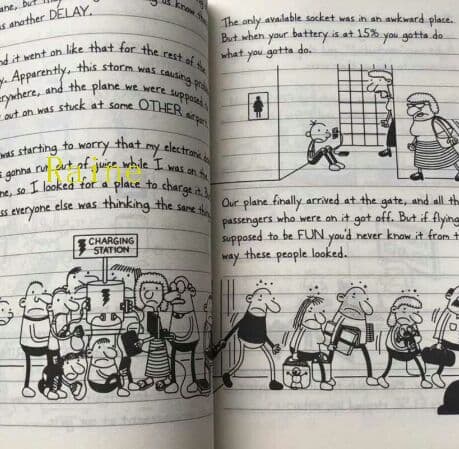 another DELAY.
it went on like that for the rest of the
Apparently, this storm was causing
and the plane we were supposed
out on was stuck at some OTHER
was starting to worry that my electronic
gonna run out of juice while I was on the
so I looked for a place to charge it.
everyone else was thinking the same
Raine
CHARGING
STATION
The only available socket was in an awkward place.
But when your battery is at 15% you gotta do
what you gotta do.
Our plane finally arrived at the gate, and all the
passengers who were on it got off. But if flying
supposed to be FUN you'd never know it from
way these people looked.